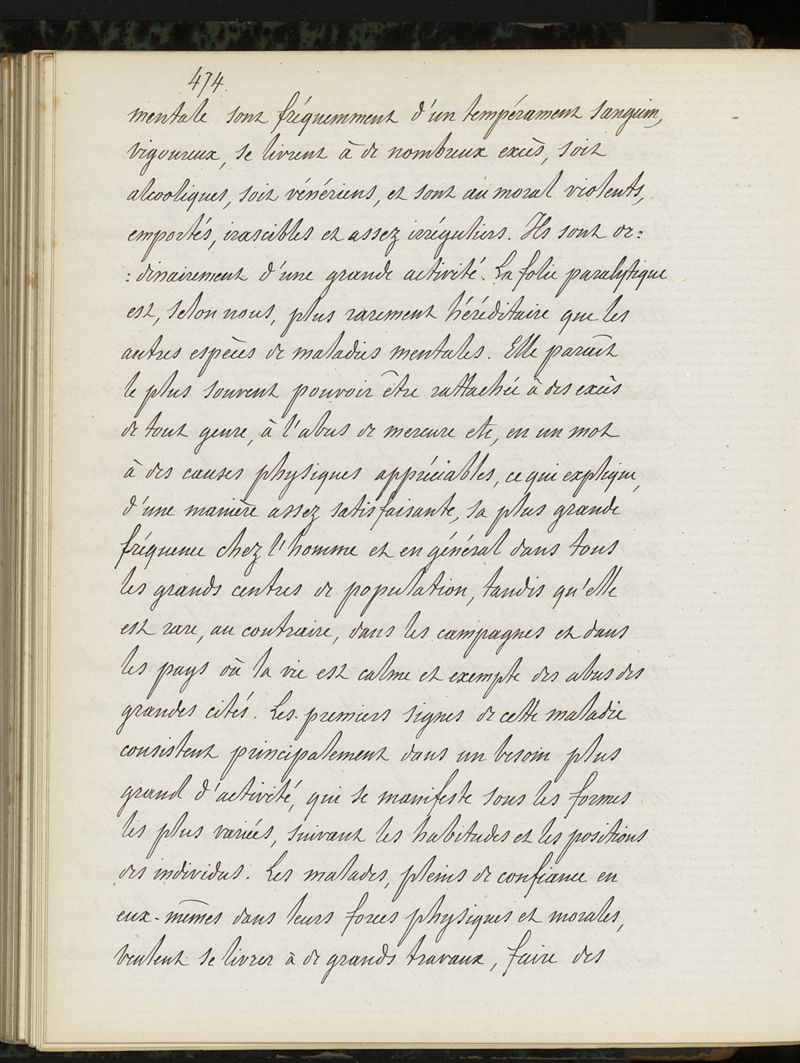 474.
mentale sont fréquemment d'un tempérament sanguin,
vigoureux, se livrent à de nombreux excès, soit
alcooliques, soit vénériens, et sont au moral violents,
emportés, irascibles et assez irréguliers. Ils sont or:
:dinairement d'une grande activité. La folie paralytique
est, selon nous, plus rarement héréditaire que les
autres espèces de maladies mentales. Elle paraît
le plus souvent pouvoir être rattachée à des excès
de tout genre, à l'abus de mercure etc, en un mot
à des causes physiques appréciables, ce qui explique,
d'une manière assez satisfaisante, sa plus grande
fréquence chez l'homme et en général dans tous
les grands centres de population, tandis qu'elle
est rare, au contraire, dans les campagnes et dans
les pays où la vie est calme et exempte des abus des
grandes cités. Les premiers signes de cette maladie
consistent principalement dans un besoin plus
grand d'activité, qui se manifeste sous les formes
les plus variées, suivant les habitudes et les positions
des individus. Les malades, pleins de confiance en
eux-mêmes dans leurs forces physiques et morales,
veulent se livrer à de grands travaux, faire des